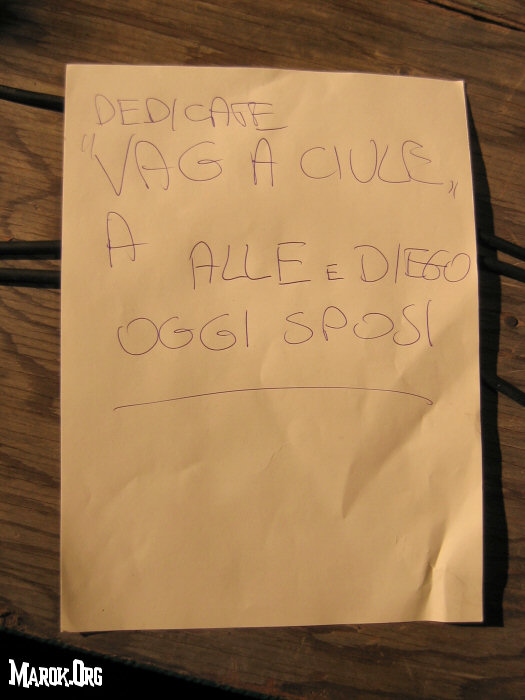 DEDICATE
"VAG A CIULE"
A
ALLE E DIEGO
OGGI SPOSI
MAROK.ORG